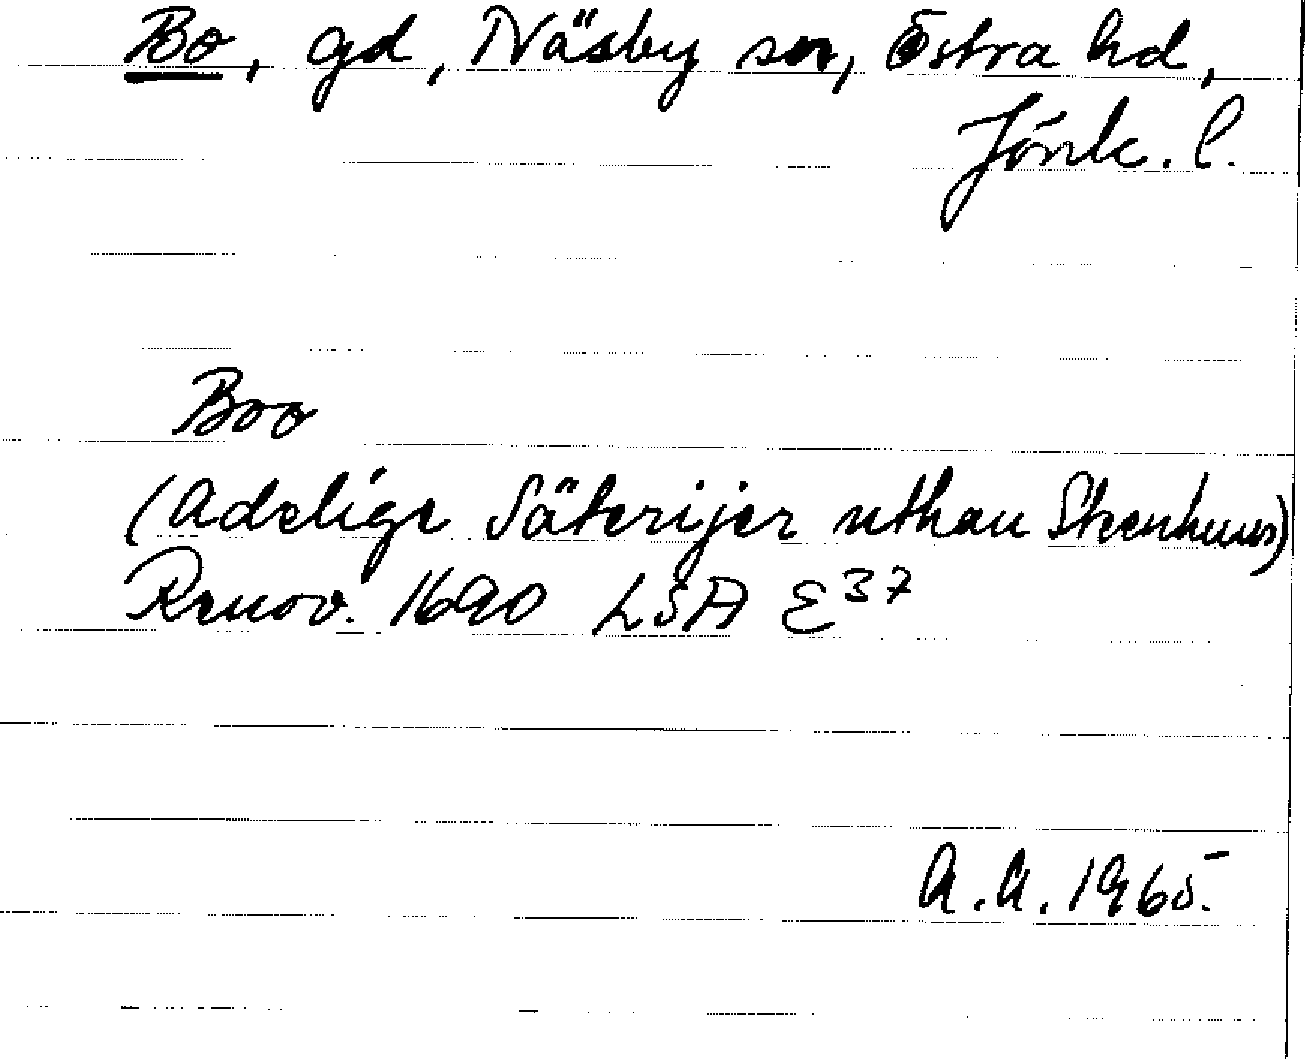 Bo, gd, Näsby sn, Östra hd,
Jönk. l.
Boo
(Adelige Säterijer uthan Steenhuus)
Renov. 1690 LSA E37
A.A. 1965.